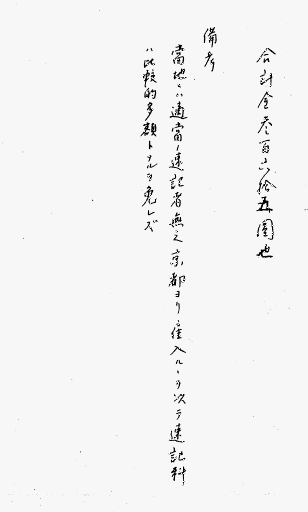 合計金参百六拾五圓也
備考
當地ニハ適當ノ速記者無之京都ヨリ雇入ルヽヲ以テ速記料
ハ比較的多額トナルヲ免レズ